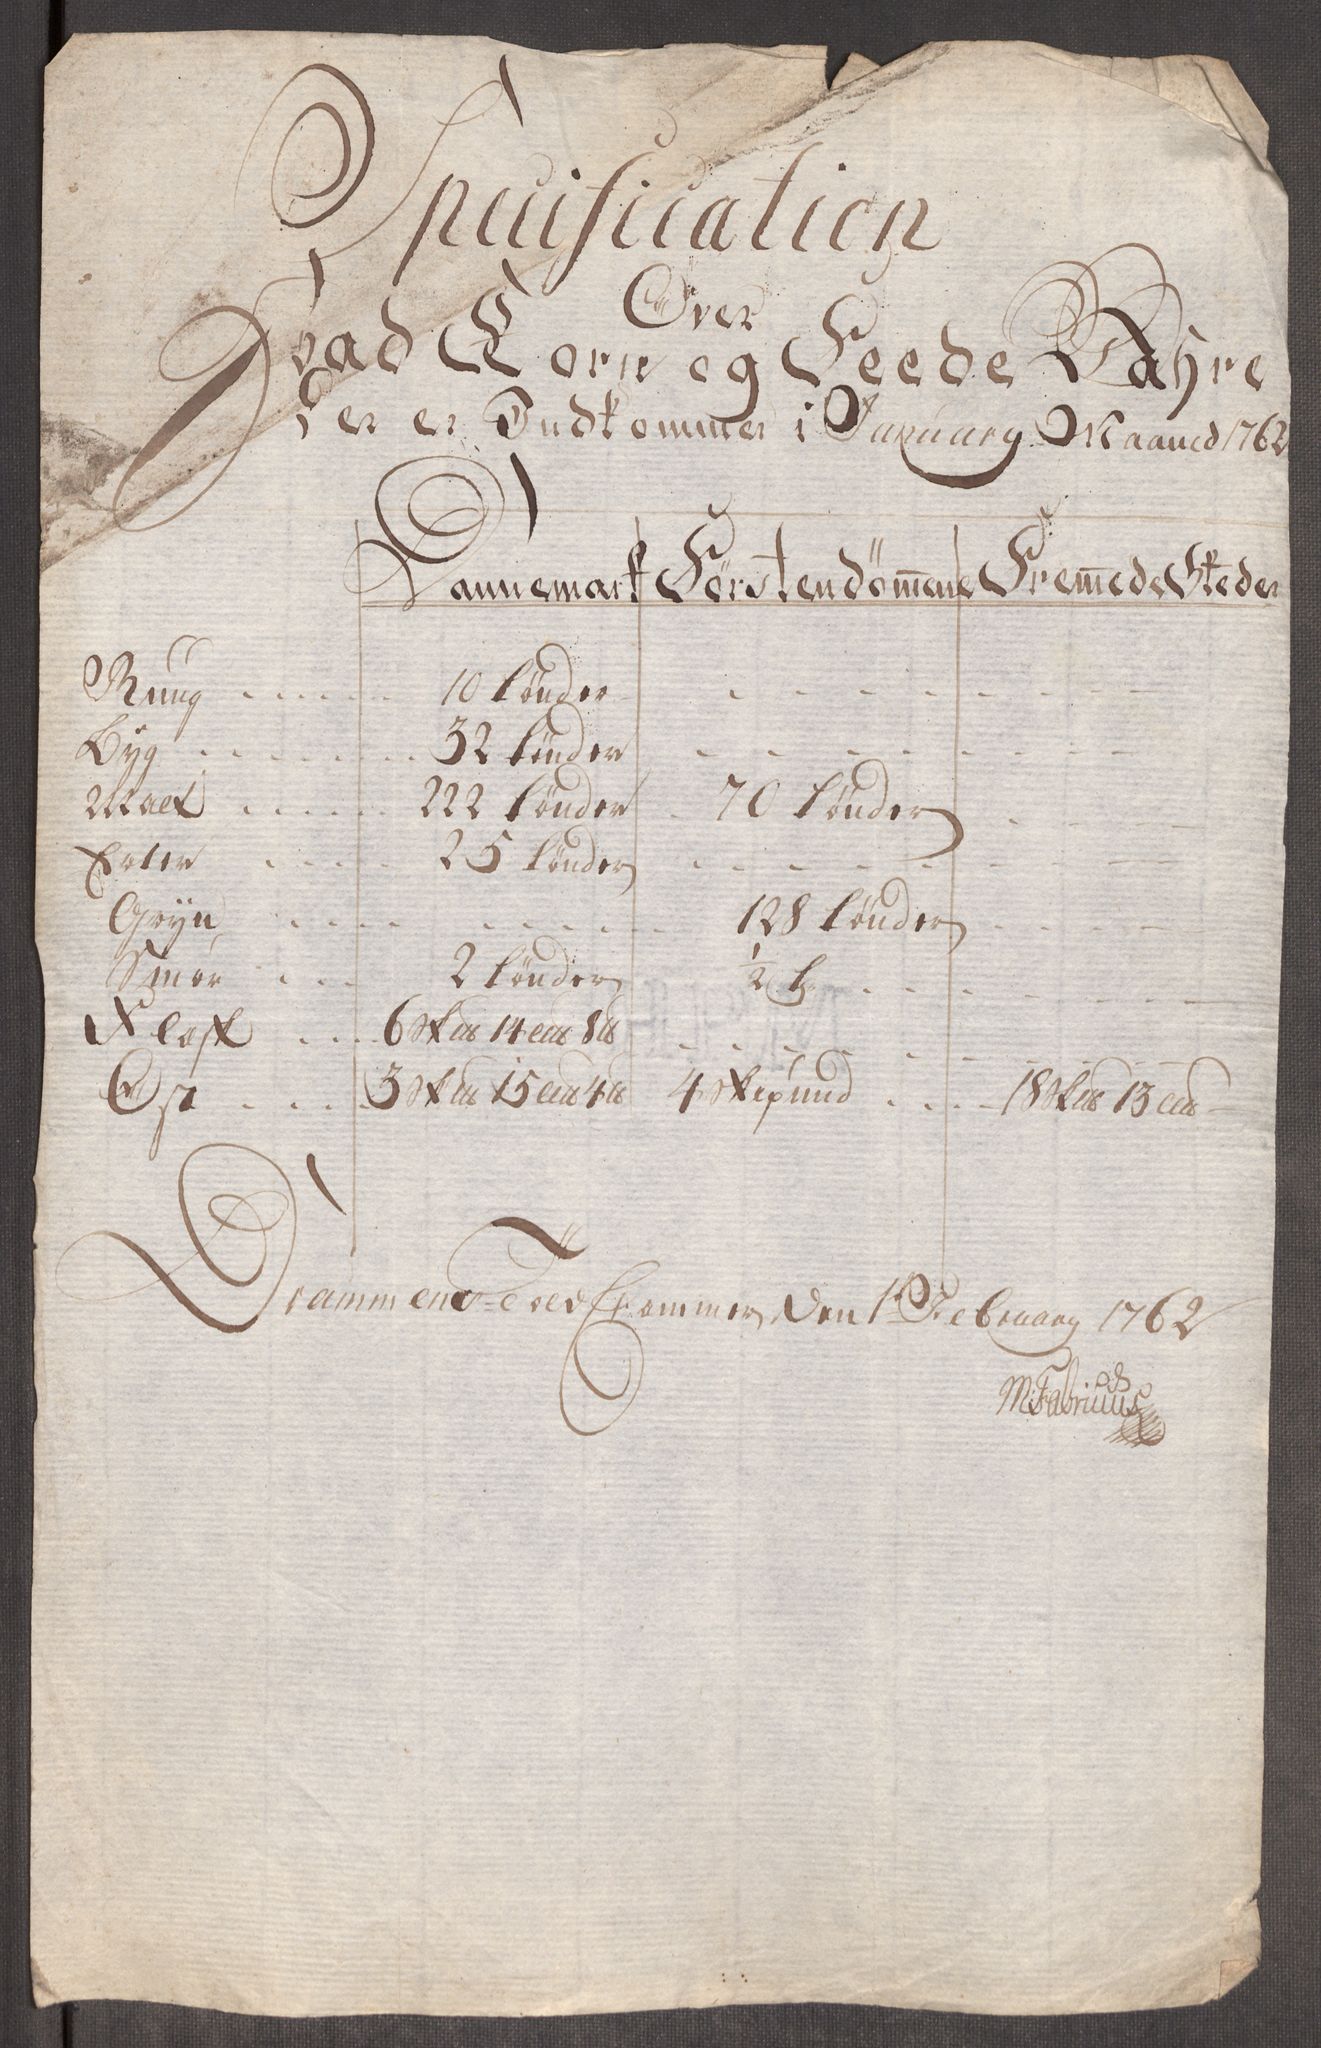 Specification
Over
Hvad Korn og Feede Vahre
Der er Indkommen i January Maaned 1762
Dannemark Førstendömmene Fremmede Steder
Rung 10 tönder
Byg 32 tönder
Malt 222 tönder 70 tönder
Erter 25 tönder
Gryn 128 tönder
Smør 2 tönder 1/2 t
Flesk 6 Sk℔ 14 L℔ 8 ℔
Ost 3 Sk℔ 15 L℔ 4 ℔ 4 Skipund 18 Sk℔ 13 L℔
Drammens Told Kammer den 1 February 1762
M: Fabricius